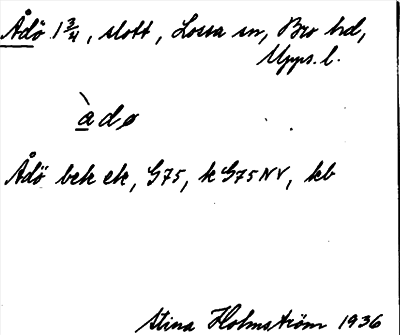 Ådö 1 3/4, slott, Lossa sn, Bro hd,
Upps. l.
àdø
Ådö bek ek, G75, k G75 NV, kb
Stina Holmström 1936